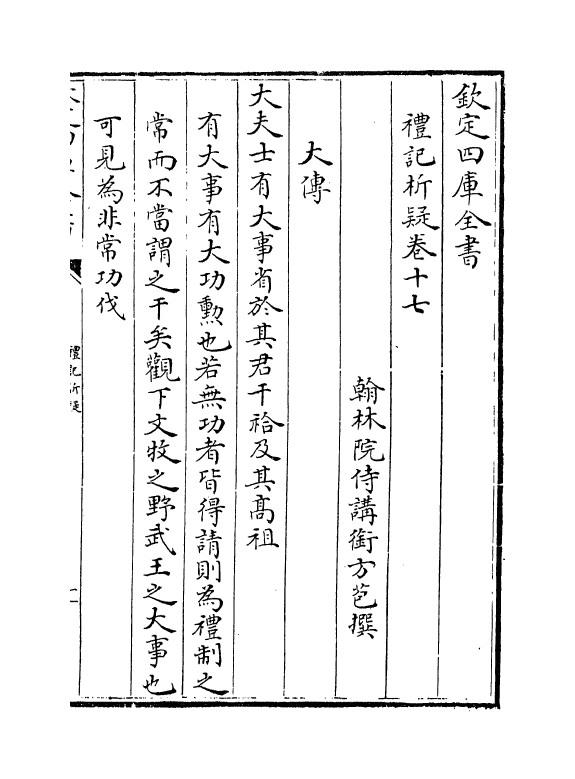 欽定四庫全書
禮記析疑卷十七
翰林院侍講銜方苞撰
大傳
大夫士有大事省於其君干祫及其高祖
有大事有大功勲也若無功者皆得請則為禮制之
常而不當謂之干矣觀下文牧之野武王之大事也
可見為非常功伐
禮記析疑